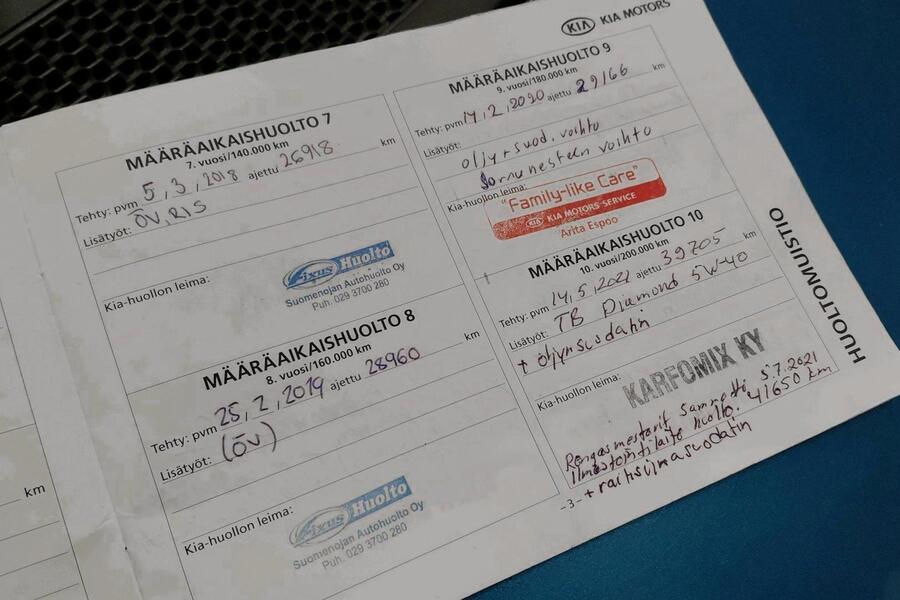 KIA KIA MOTORS
MÄÄRÄAIKAISHUOLTO 7
7. vuosi/140.000 km
Tehty: pvm 5,3,2018 ajettu 26918 km
Lisätyöt: ÖV, RIS
Kia-huollon leima:
Fixus Huolto
Suomenojan Autohuolto Oy
Puh. 029 3700 280
MÄÄRÄAIKAISHUOLTO 8
8. vuosi/160.000 km
Tehty: pvm 25,2,2019 ajettu 28960 km
Lisätyöt: (ÖV)
Kia-huollon leima:
Fixus Huolto
Suomenojan Autohuolto Oy
Puh. 029 3700 280
MÄÄRÄAIKAISHUOLTO 9
9. vuosi/180.000 km
Tehty: pvm 14,2,2020 ajettu 29166 km
Lisätyöt:
öljy + suod. vaihto
Jarrunesteen vaihto
Kia-huollon leima:
"Family-like Care"
KIA KIA MOTORS SERVICE
Arita Espoo
MÄÄRÄAIKAISHUOLTO 10
10. vuosi/200.000 km
Tehty: pvm 14,5,2021 ajettu 39705 km
Lisätyöt: TB Diamond 5W-40
+ öljynsuodatin
Kia-huollon leima:
KARFOMIX KY
Rengasmestarit Sammatti 5.7.2021
Ilmastointilaite huolto. 41650 km
-3- + raitisilmasuodatin
HUOLTOMUISTIO
km